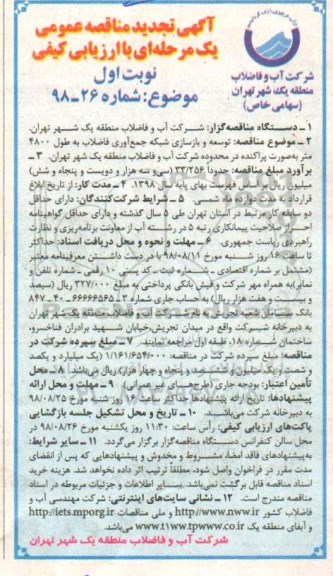 آگهی تجدید مناقصه عمومی
یک مرحله‌ای با ارزیابی کیفی
نوبت اول
موضوع: شماره ۲۶-۹۸
شرکت آب و فاضلاب
منطقه یک شهر تهران
(سهامی خاص)
۱ - دستگاه مناقصه‌گزار: شرکت آب و فاضلاب منطقه یک شهر تهران.
۲ - موضوع مناقصه: توسعه و بازسازی شبکه جمع‌آوری فاضلاب به طول ۴۸۰۰
متر به‌صورت پراکنده در محدوده شرکت آب و فاضلاب منطقه یک شهر تهران. ۳ -
برآورد مبلغ مناقصه: حدوداً ۳۳/۲۵۶ (سی‌وسه هزار و دویست و پنجاه و شش)
میلیون ریال براساس فهرست بهای پایه سال ۱۳۹۸. ۴ - مدت کار: از تاریخ ابلاغ
قرارداد به مدت دوازده ماه شمسی. ۵ - شرایط شرکت‌کنندگان: دارای حداقل
دو سابقه کار مرتبط در استان تهران طی ۵ سال گذشته و دارای حداقل گواهینامه
احراز صلاحیت پیمانکاری رتبه ۵ در رشته آب از معاونت برنامه‌ریزی و نظارت
راهبردی ریاست جمهوری. ۶ - مهلت و نحوه و محل دریافت اسناد: حداکثر
تا ساعت ۱۶ روز شنبه مورخ ۹۸/۰۸/۱۱ با در دست داشتن معرفینامه معتبر
(مشتمل بر شماره اقتصادی - شماره ثبت - کد پستی ۱۰ رقمی - شماره تلفن و
نمابر) به همراه مهر شرکت و فیش بانکی پرداختی به مبلغ ۳۲۷/۰۰۰ ریال (سیصد
و بیست و هفت هزار ریال) به حساب جاری شماره ۳-۶۶۶۶۶۵۶۵-۴۰-۸۴۷
بانک شعبه تجریش به نام شرکت آب و فاضلاب منطقه یک شهر تهران
به دبیرخانه شرکت واقع در میدان تجریش، خیابان شهید برادران فناخسرو،
ساختمان شماره ۱۸، طبقه اول مراجعه نمایند. ۷ - مبلغ سپرده شرکت در
مناقصه: مبلغ سپرده شرکت در مناقصه: ۱/۱۶۱/۶۵۴/۰۰۰ (یک میلیارد و یکصد
و شصت و یک میلیون و ششصد و پنجاه و چهار هزار) ریال می‌باشد. ۸ - محل
تأمین اعتبار: بودجه جاری (طرح‌های غیرعمرانی). ۹ - مهلت و محل ارائه
پیشنهادها: تاریخ ارائه پیشنهادها حداکثر ساعت ۱۶ روز شنبه مورخ ۹۸/۰۸/۲۵
به دبیرخانه شرکت می‌باشد. ۱۰ - تاریخ و محل تشکیل جلسه بازگشایی
پاکت‌های ارزیابی کیفی: رأس ساعت: ۱۱:۳۰ روز یکشنبه مورخ ۹۸/۰۸/۲۶ در
محل سالن کنفرانس دستگاه مناقصه‌گزار برگزار می‌گردد. ۱۱ - سایر شرایط:
به پیشنهادهای فاقد امضا، مشروط و مخدوش و پیشنهادهایی که پس از انقضای
مدت مقرر در فراخوان واصل شود، مطلقاً ترتیب اثر داده نخواهد شد. هزینه خرید
اسناد مناقصه قابل برگشت نمی‌باشد. سایر اطلاعات و جزئیات مربوطه در اسناد
مناقصه مندرج است. ۱۲ - نشانی سایت‌های اینترنتی: شرکت مهندسی آب و
فاضلاب کشور http://www.nww.ir و ملی مناقصات http://iets.mporg.ir
و آبفای منطقه یک www.t1ww.tpww.co.ir می‌باشد.
شرکت آب و فاضلاب منطقه یک شهر تهران